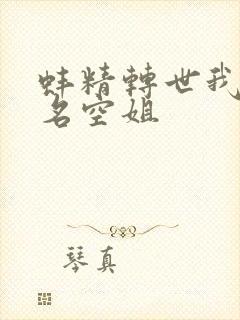 蚌精轉世我
名空姐
琴真